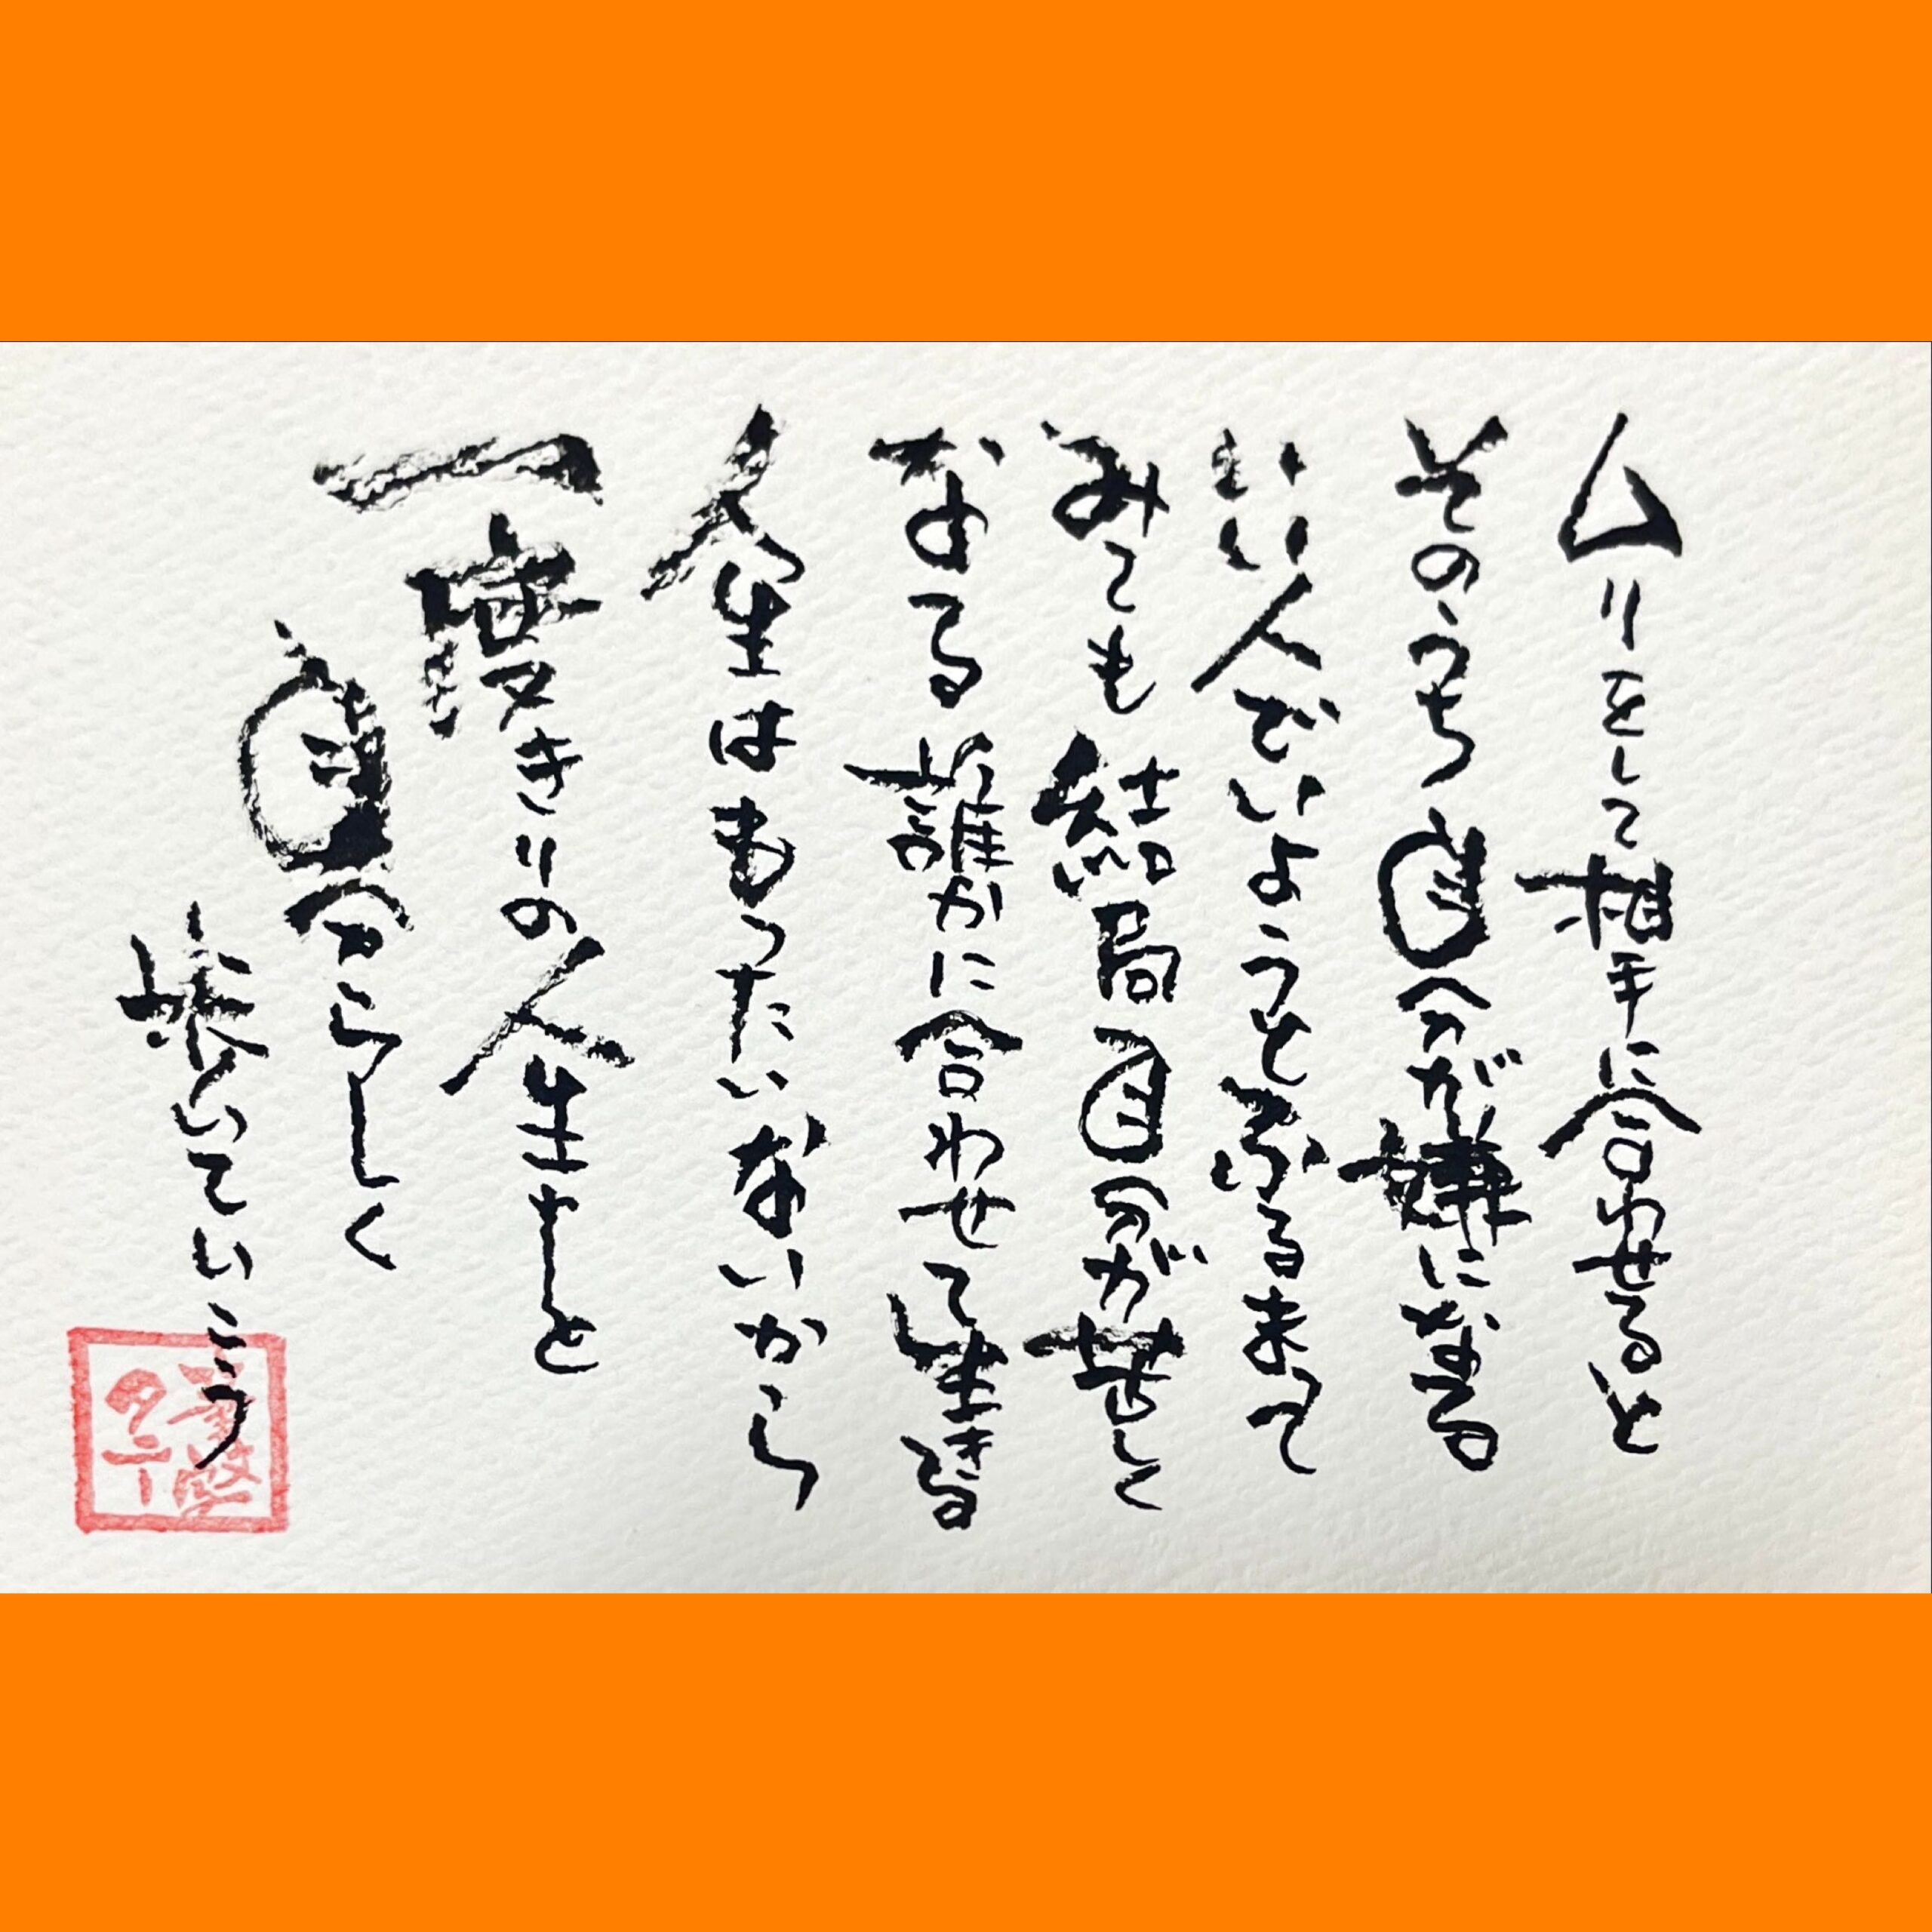 ムリをして相手に合わせると
そのうち自分が嫌になる
いい人でいようとふるまって
みても結局自分が苦しく
なる誰かに合わせて生きる
人生はもったいないから
一度きりの人生もっと
自分らしく
歩いていこう